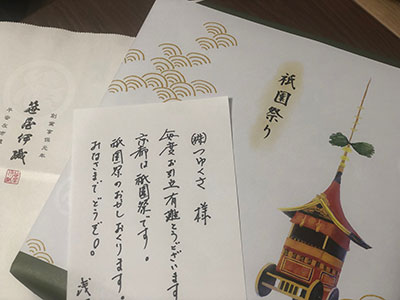 祇園祭り
㈱つゆくさ 様
毎度お引立有難とうございます
京都は祇園祭です。
祇園祭のおかしおくります。
おなさまでどうぞ。
創業享保元年
笹屋伊織